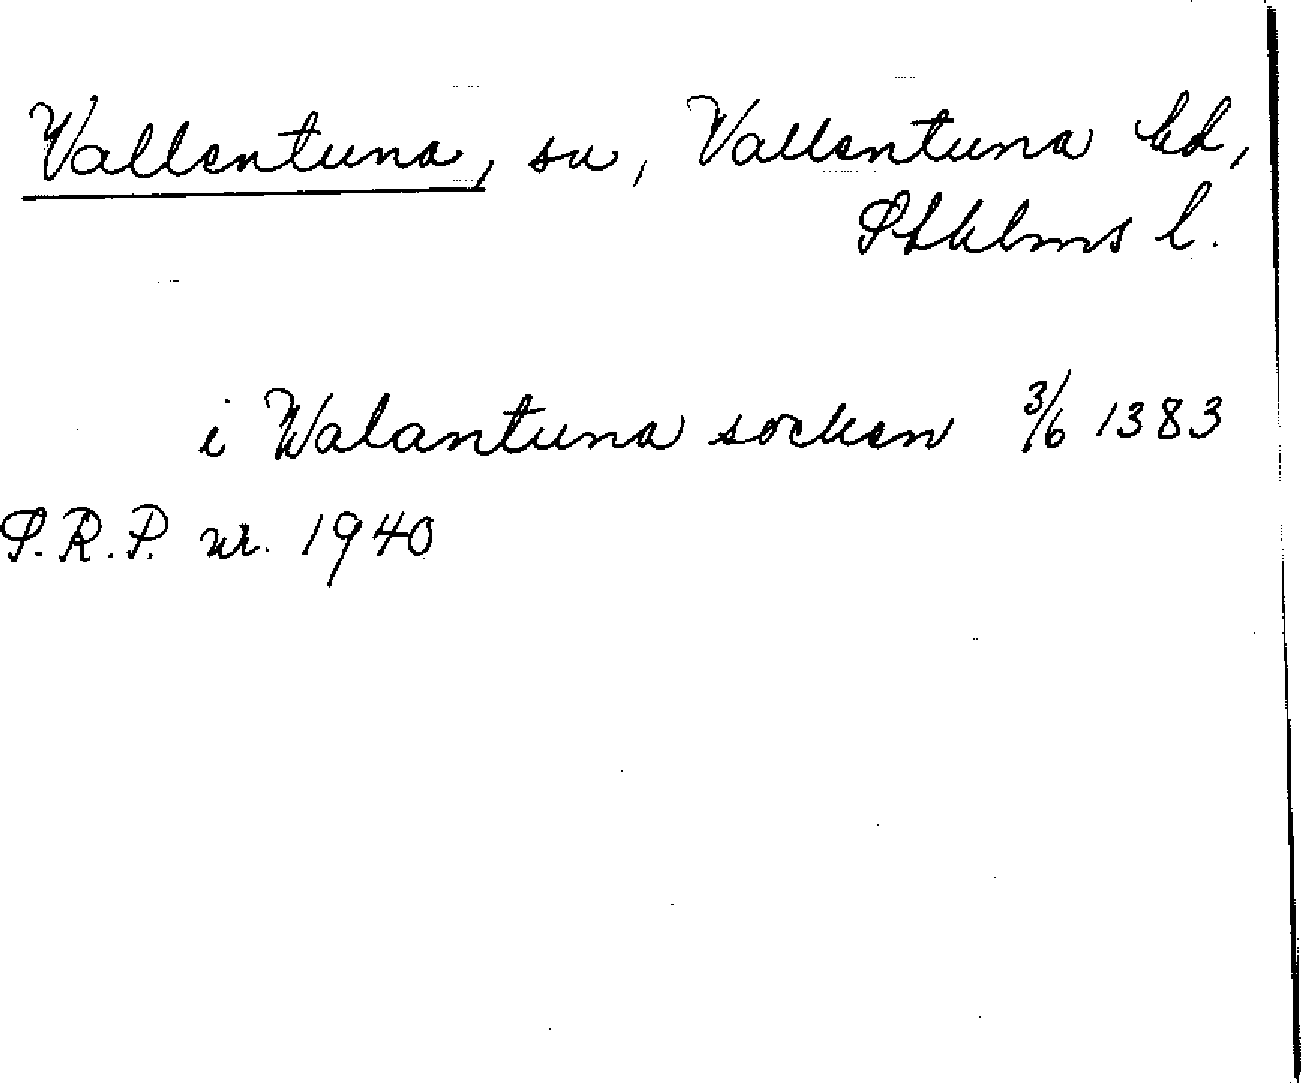 Vallentuna, sn, Vallentuna hd,
Sthlms l.
i Walantuna socken 3/6 1383
S.R.P. nr. 1940